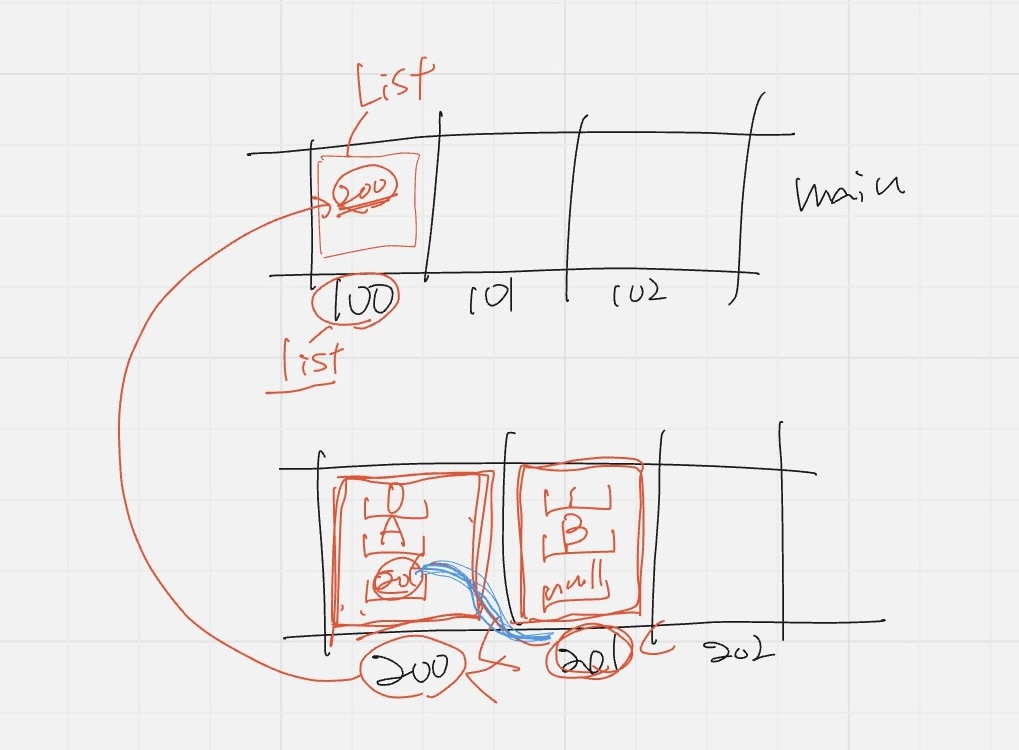 List
200
main
100 101 102
list
0 1
A B
201 null
200 201 202